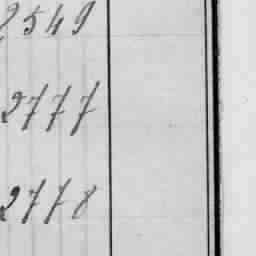 2549
2777
2778